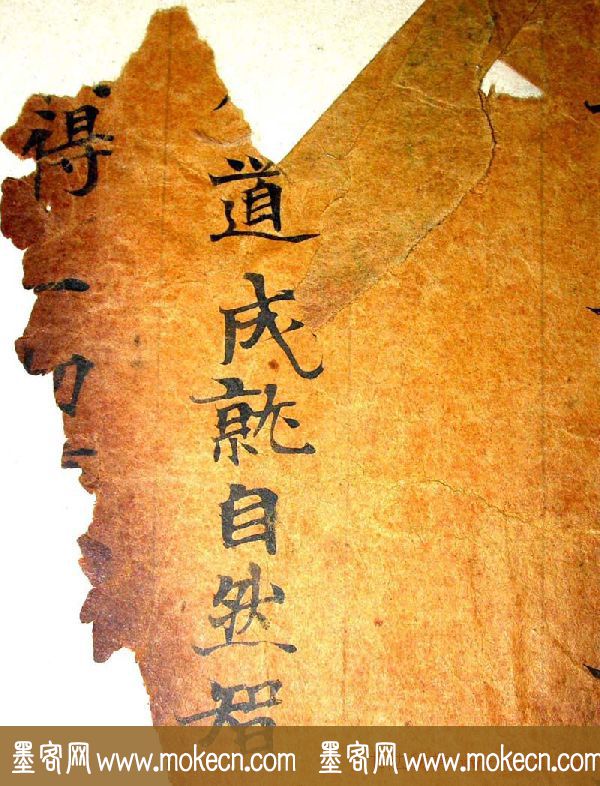 道成就自然智
得一切
墨客网 www.mokecn.com 墨客网 www.mokecn.com